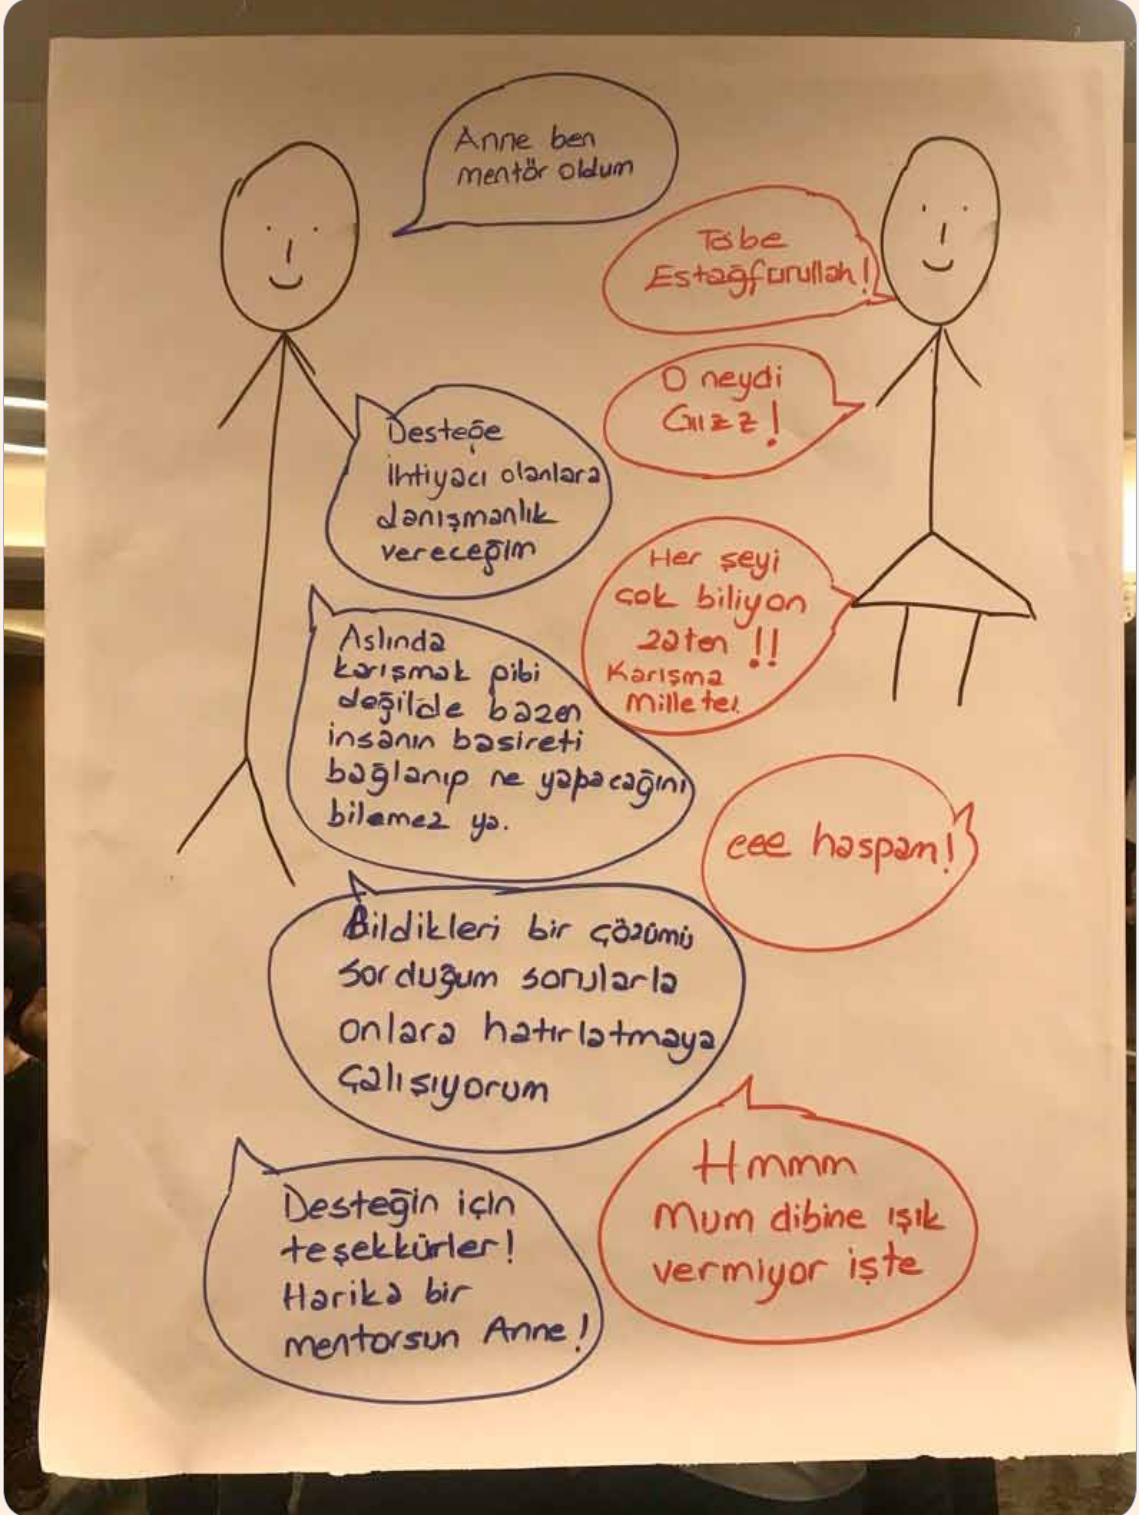 Anne ben
mentör oldum
Töbe
Estağfurullah!
O neydi
Gızz!
Desteğe
İhtiyacı olanlara
danışmanlık
vereceğim
Her şeyi
çok biliyon
zaten !!
Karışma
Millete!
Aslında
karışmak gibi
değilde bazen
insanın basireti
bağlanıp ne yapacağını
bilemez ya.
eee haspam!
Bildikleri bir çözümü
sorduğum sorularla
onlara hatırlatmaya
çalışıyorum
Hmmm
Mum dibine ışık
vermiyor işte
Desteğin için
teşekkürler!
Harika bir
mentorsun Anne!